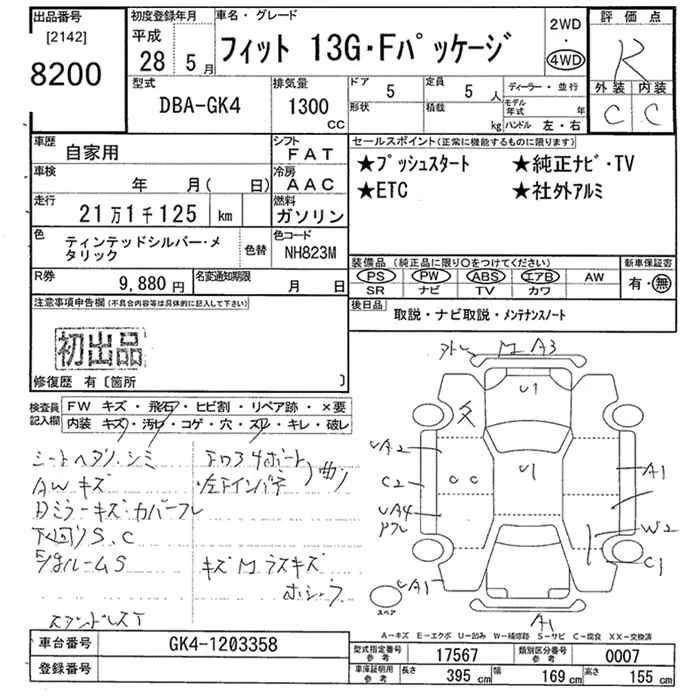 出品番号
[2142]
8200
初度登録年月
平成
28年 5月
車名・グレード
フィット 13G・Fパッケージ
2WD
・
4WD
評価点
R
外装 内装
C C
型式
DBA-GK4
排気量
1300
CC
ドア
5
定員
5人
形状
積載
kg
ディーラー・並行
モデル年式 年
ハンドル 左・右
車歴
自家用
シフト
FAT
車検
年 月( 日)
冷房
AAC
走行
21万1千125 km
燃料
ガソリン
色
ティンテッドシルバー・メタリック
色替
色コード
NH823M
R券
9,880円
名変通知期限
月 日
セールスポイント(正常に機能するものに限ります)
★プッシュスタート ★純正ナビ・TV
★ETC ★社外アルミ
装備品(純正品に限り○をつけてください)
PS PW ABS エアB AW
SR ナビ TV カワ
新車保証書
有・無
後日品
取説・ナビ取説・メンテナンスノート
注意事項申告欄(不具合内容等は具体的に記入して下さい)
初出品
修復歴 有〔箇所 〕
検査員記入欄
FW キズ・飛石・ヒビ割・リペア跡・×要
内装 キズ・汚レ・コゲ・穴・スレ・キレ・破レ
シートヘタリ、シミ
AWキズ
Dミラーキズ・カバーフレ
下回りS、C
ルームS
左下インパチ
曲り
スタンドレスT
A3
U1
UA2
C2
UA4
U1
C C
A1
W2
C1
UA1
A1
スペア
A－キズ E－エクボ U－凹み W－補修跡 S－サビ C－腐食 XX－交換済
車台番号
GK4-1203358
登録番号
型式指定番号
参考
17567
類別区分番号
参考
0007
車庫証明用
参考
長さ 395 cm
幅 169 cm
高さ 155 cm